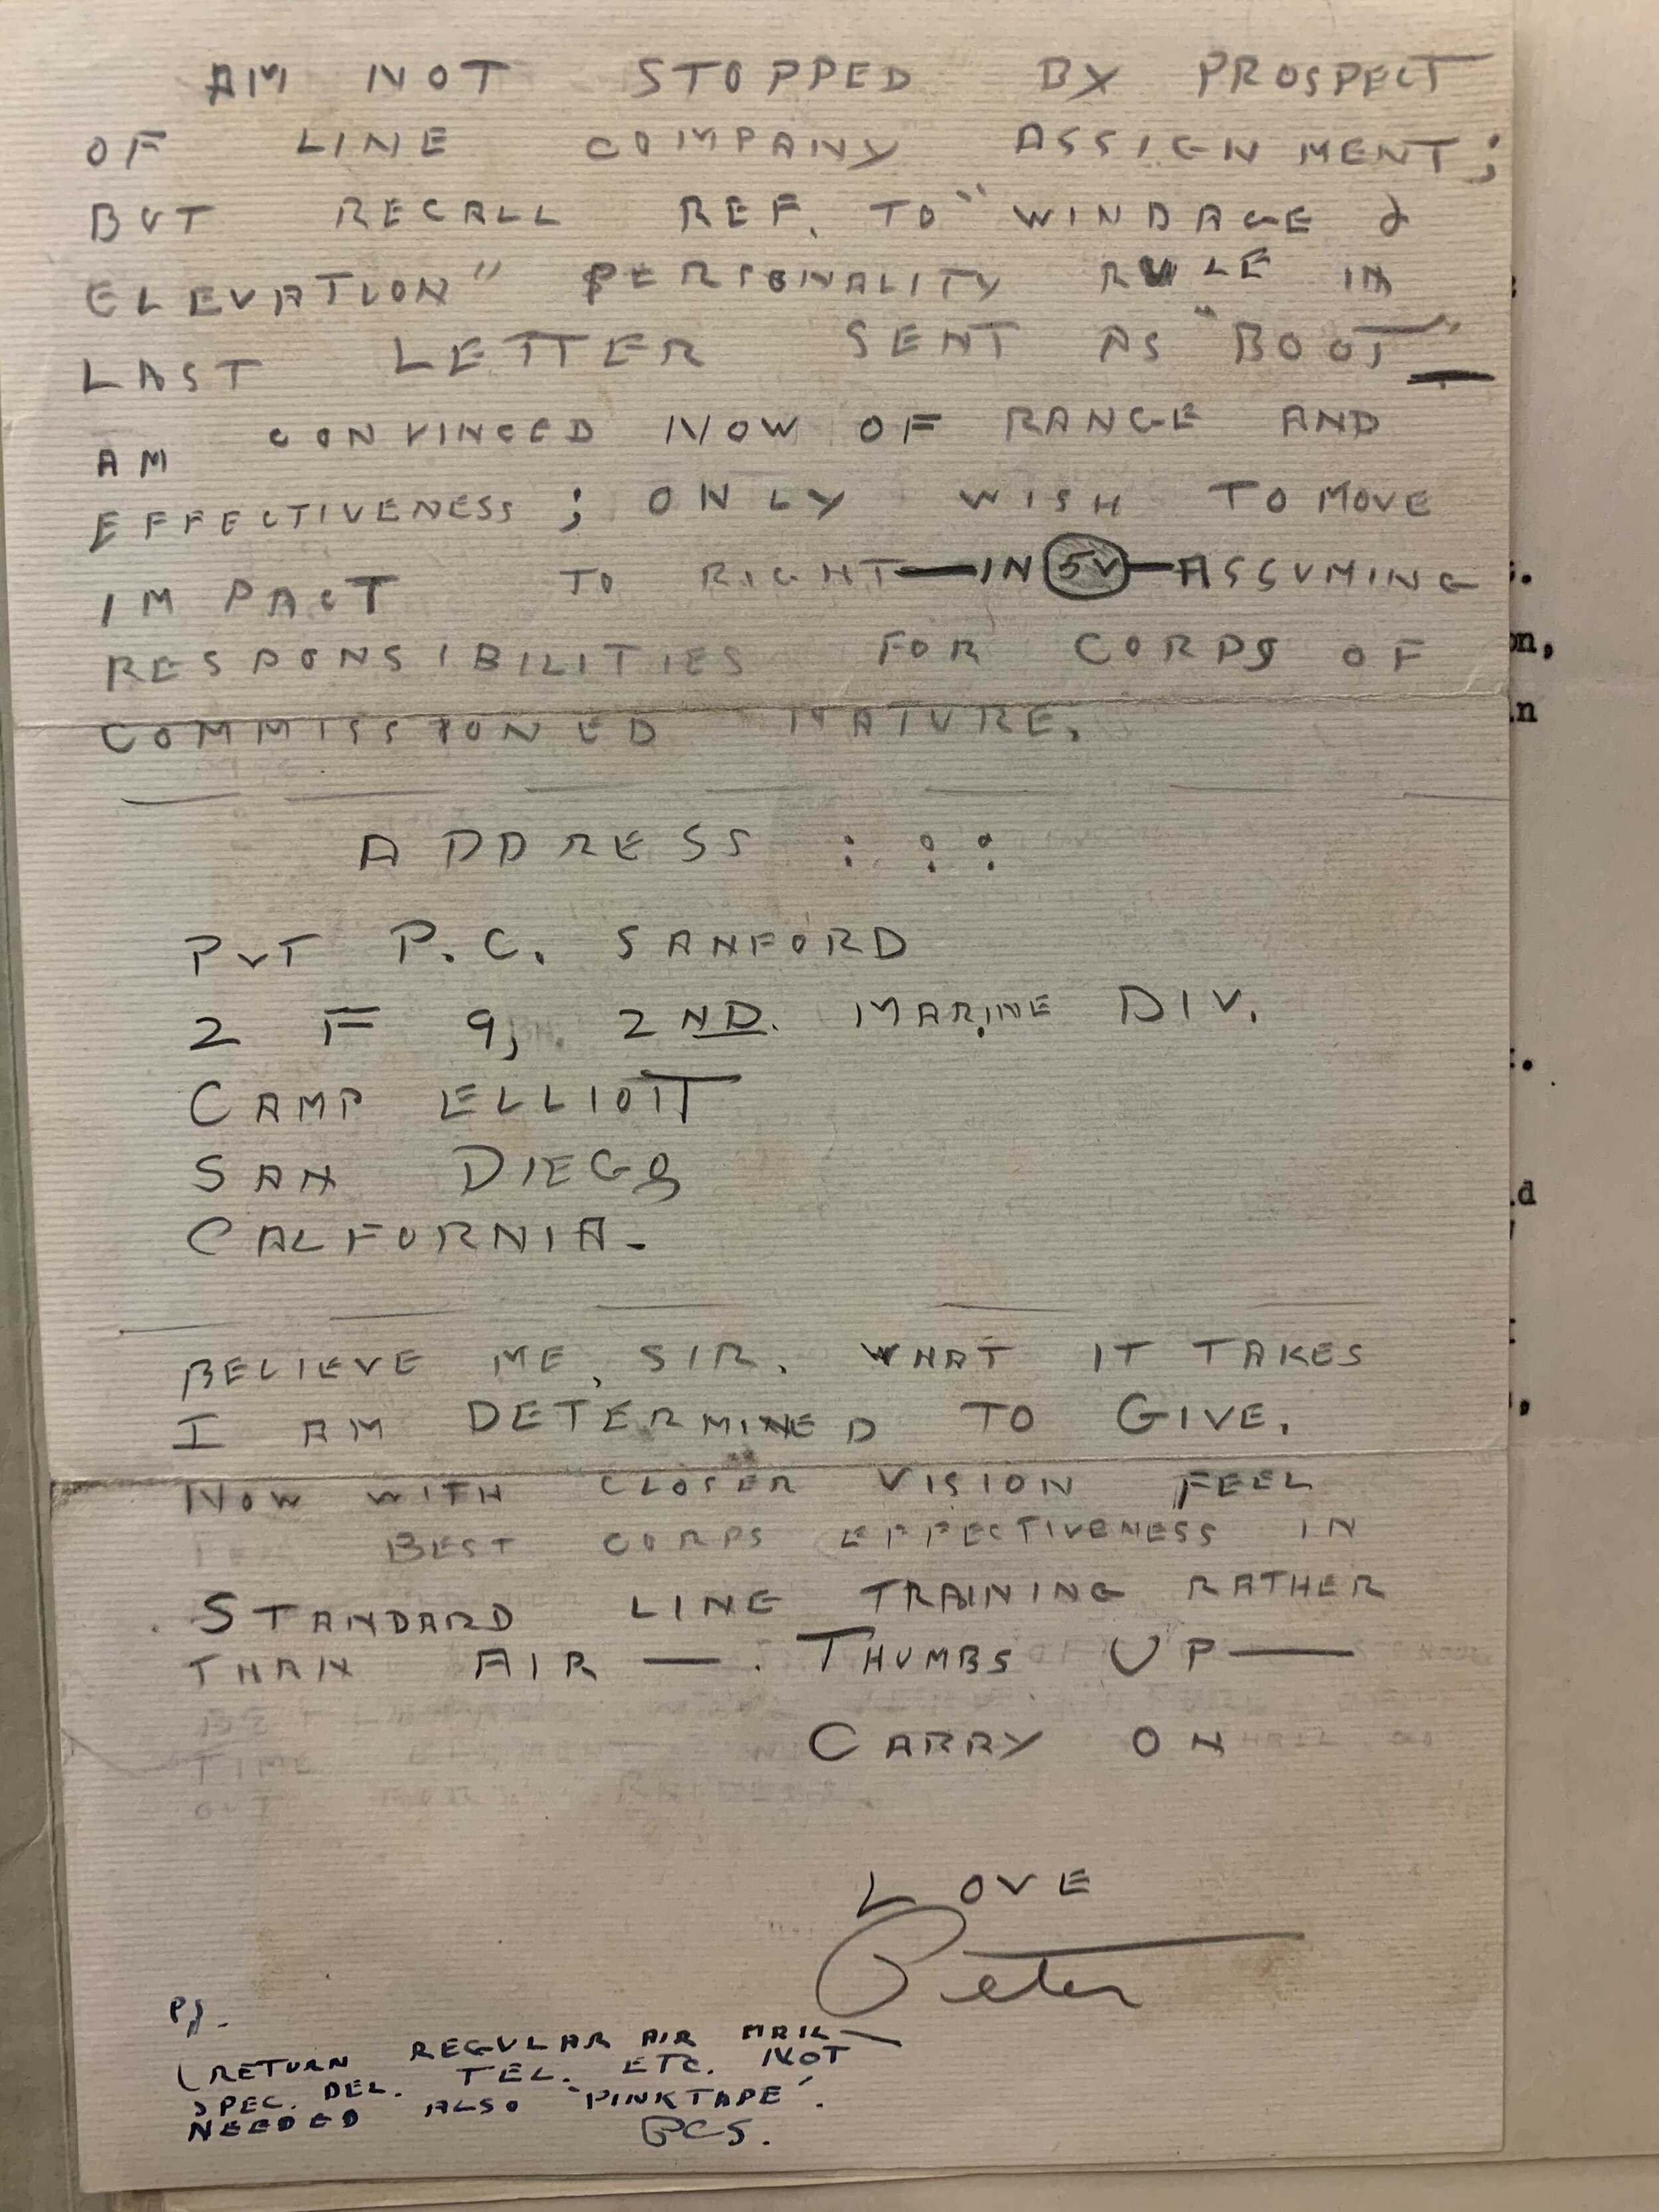 AM NOT STOPPED BY PROSPECT
OF LINE COMPANY ASSIGNMENT;
BUT RECALL REF. TO "WINDAGE &
ELEVATION" PERSONALITY RULE IN
LAST LETTER SENT AS "BOOT"
AM CONVINCED NOW OF RANGE AND
EFFECTIVENESS; ONLY WISH TO MOVE
IMPACT TO RIGHT—IN 5V—ASSUMING
RESPONSIBILITIES FOR CORPS OF
COMMISSIONED NATURE.
ADDRESS : : :
PVT P.C. SANFORD
2 F 9, 2ND. MARINE DIV.
CAMP ELLIOTT
SAN DIEGO
CALFORNIA-
BELIEVE ME, SIR. WHAT IT TAKES
I AM DETERMINED TO GIVE.
NOW WITH CLOSER VISION FEEL
BEST CORPS EFFECTIVENESS IN
STANDARD LINE TRAINING RATHER
THAN AIR —. THUMBS UP—
CARRY ON
LOVE
Peter
PS.
(RETURN REGULAR AIR MAIL—
SPEC. DEL. TEL. ETC. NOT
NEEDED ALSO 'PINKTAPE'.
PCS.
on,
in